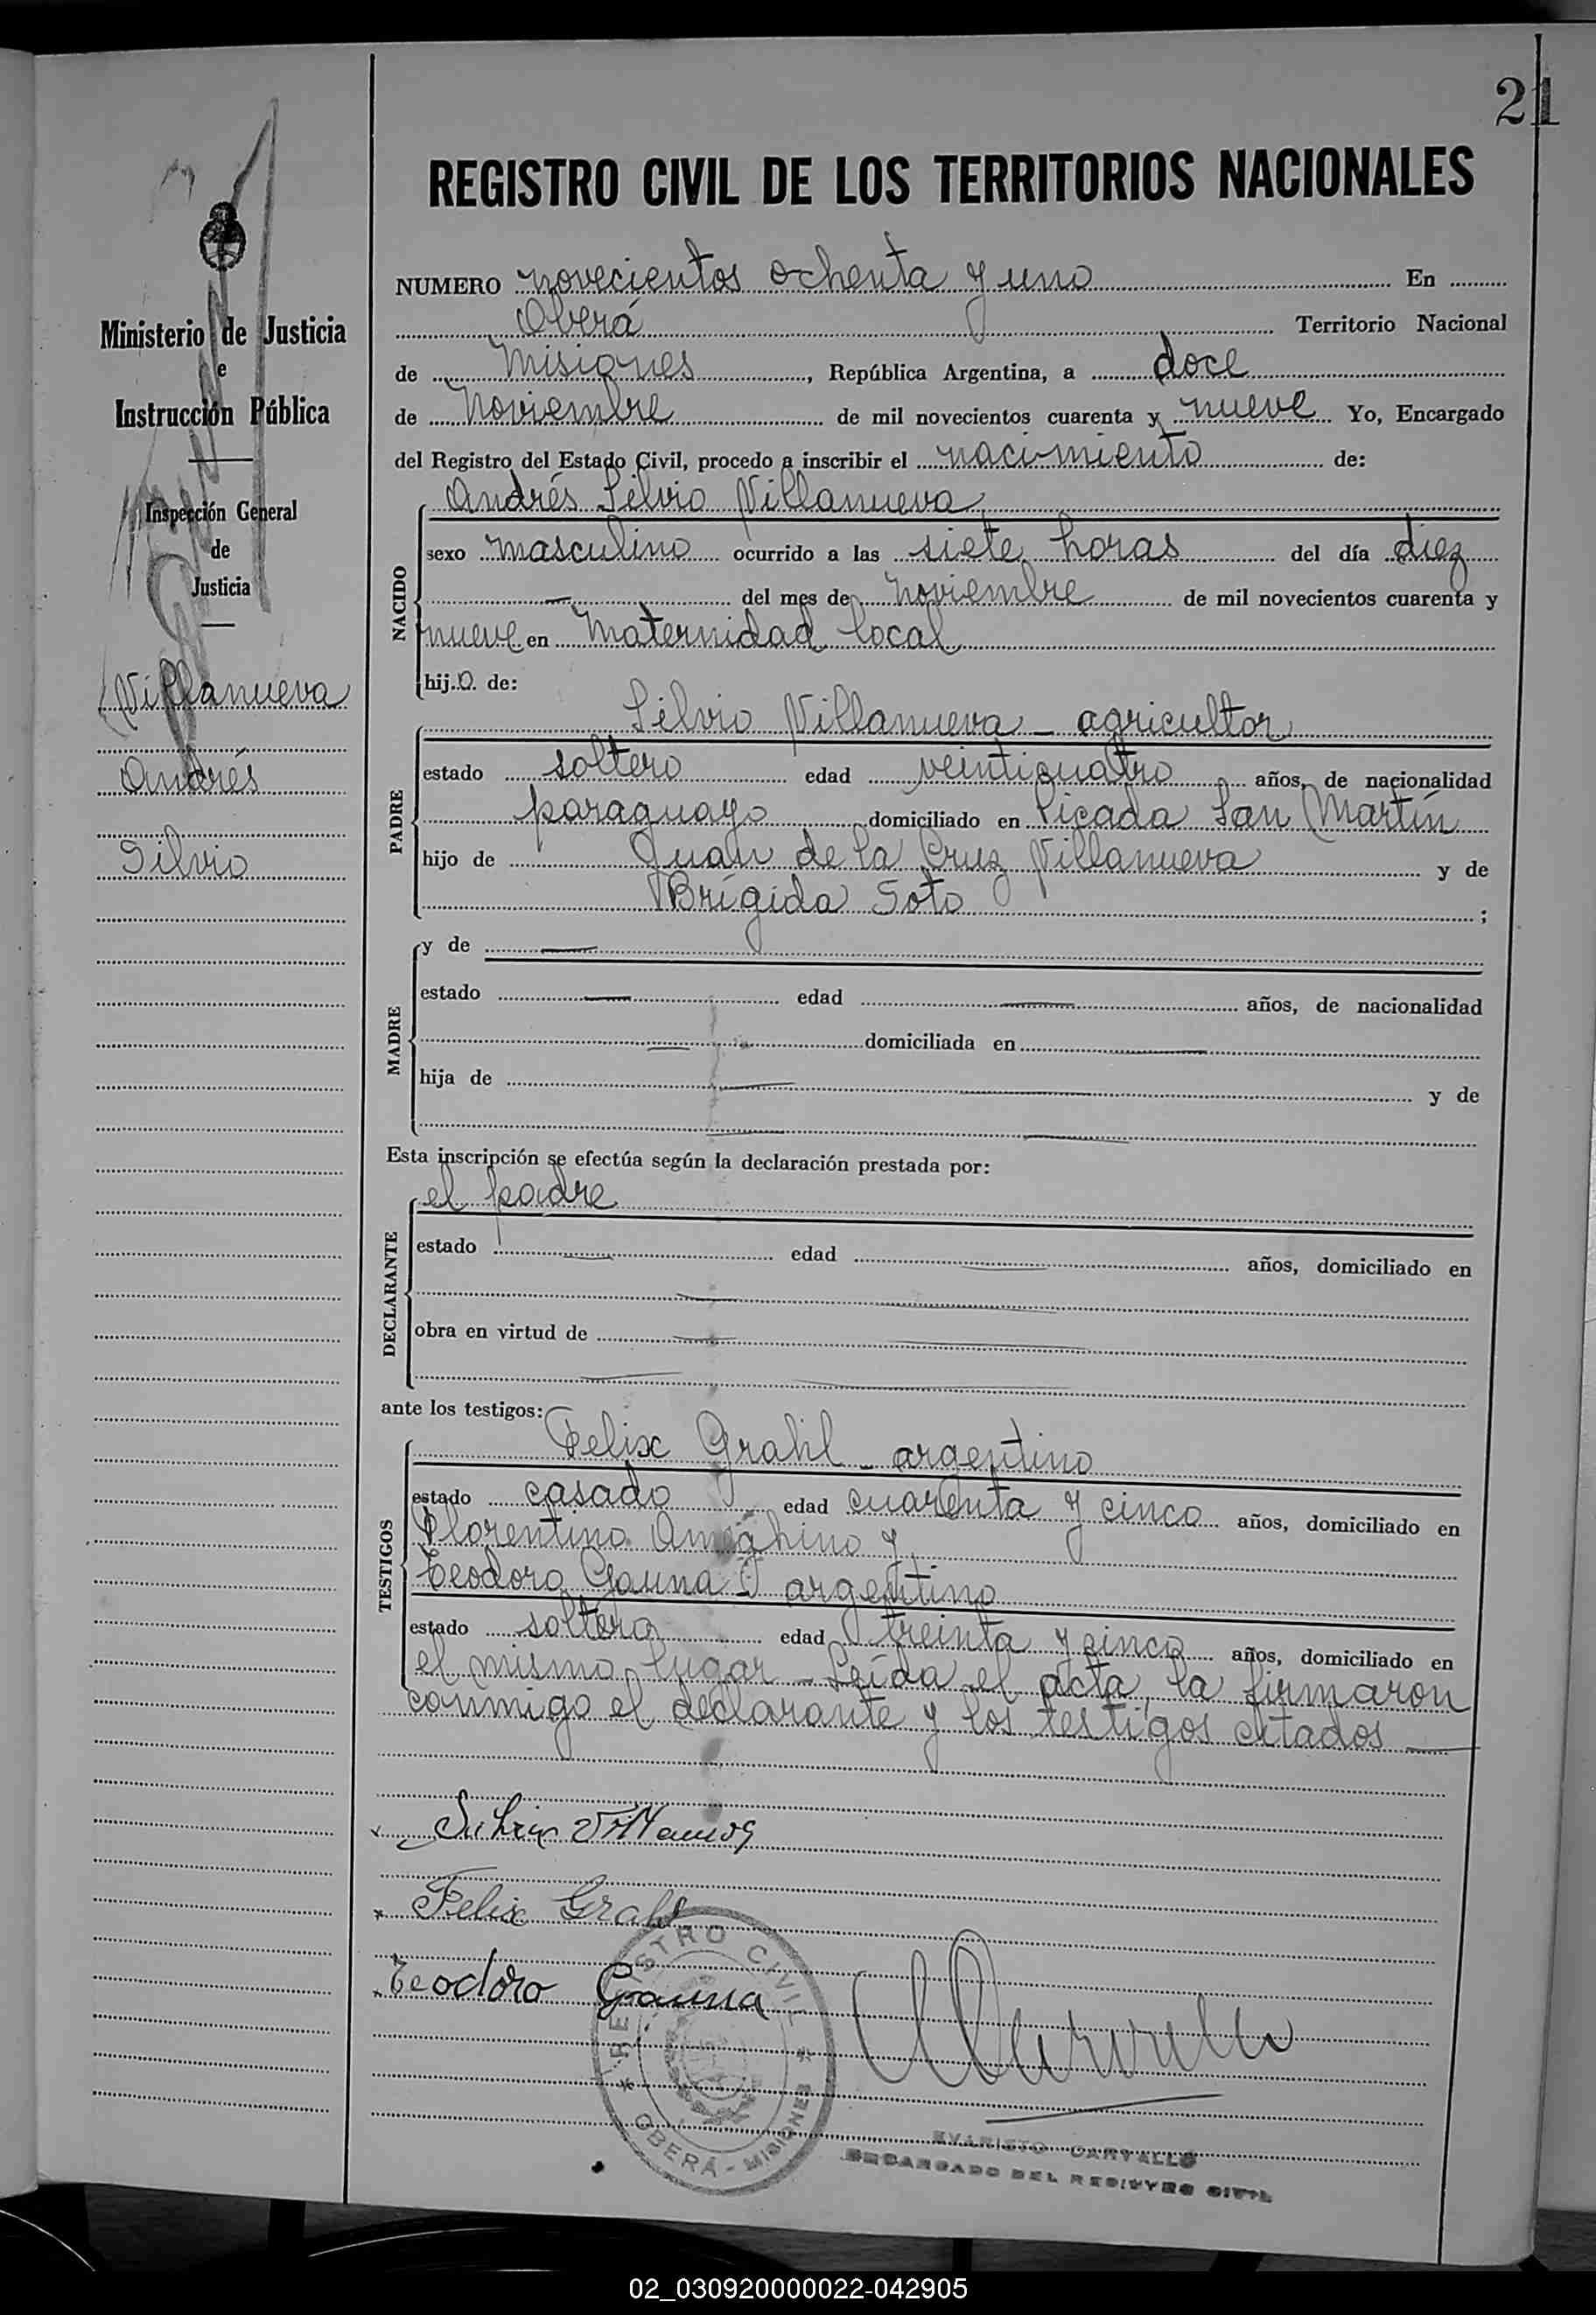 21
REGISTRO CIVIL DE LOS TERRITORIOS NACIONALES
Ministerio de Justicia
e
Instrucción Pública
Inspección General
de
Justicia
Villanueva
Andrés
Silvio
NUMERO novecientos ochenta y uno En
Oberá Territorio Nacional
de Misiones, República Argentina, a doce
de Noviembre de mil novecientos cuarenta y nueve Yo, Encargado
del Registro del Estado Civil, procedo a inscribir el nacimiento de:
NACIDO
Andrés Silvio Villanueva
sexo masculino ocurrido a las siete horas del día diez
— del mes de Noviembre de mil novecientos cuarenta y
nueve en Maternidad local
hijo de:
PADRE
Silvio Villanueva - agricultor
estado soltero edad veinticuatro años, de nacionalidad
paraguayo domiciliado en Picada San Martín
hijo de Juan de la Cruz Villanueva y de
Brígida Soto ;
MADRE
y de —
estado — edad — años, de nacionalidad
— domiciliada en —
hija de — y de
—
Esta inscripción se efectúa según la declaración prestada por:
DECLARANTE
el padre
estado — edad — años, domiciliado en
—
obra en virtud de —
—
ante los testigos:
TESTIGOS
Felix Grahl - argentino
estado casado edad cuarenta y cinco años, domiciliado en
Florentino Ameghino y
Teodoro Gauna - argentino
estado soltero edad treinta y cinco años, domiciliado en
el mismo lugar - Leída el acta, la firmaron
conmigo el declarante y los testigos citados —
Silvio Villanueva
Felix Grahl
Teodoro Gauna
REGISTRO CIVIL
OBERÁ - MISIONES
EVARISTO CARVALLO
ENCARGADO DEL REGISTRO CIVIL
02_030920000022-042905